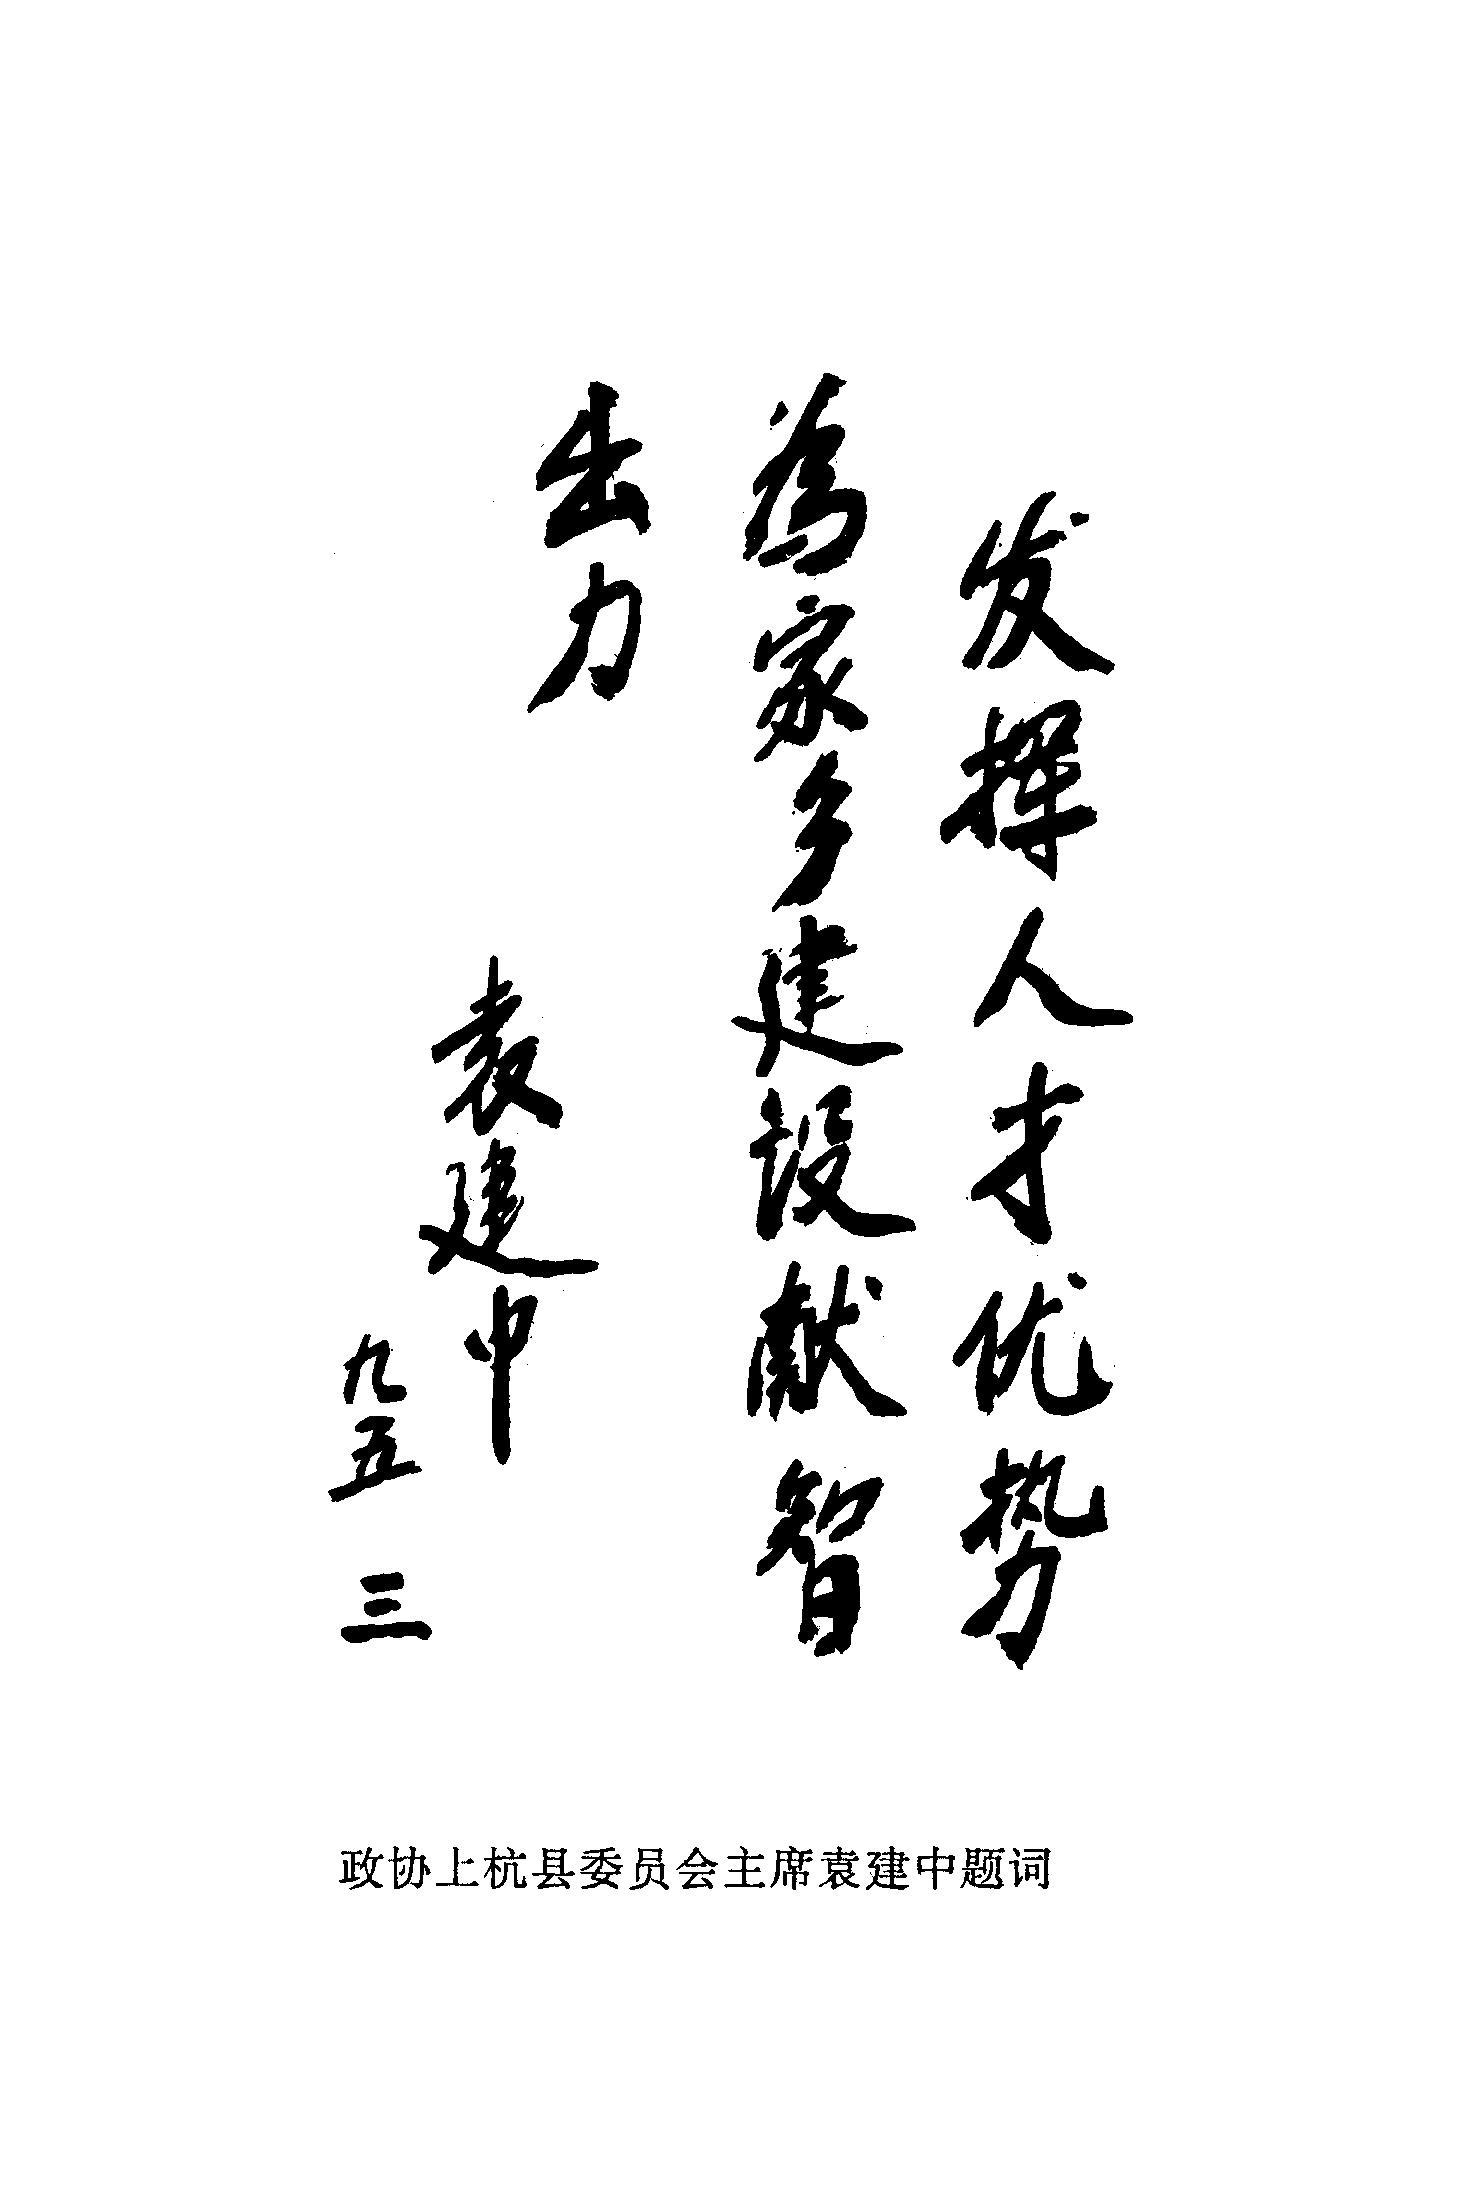 发挥人才优势
為家乡建设献智
出力
袁建中
九五 三
政协上杭县委员会主席袁建中题词